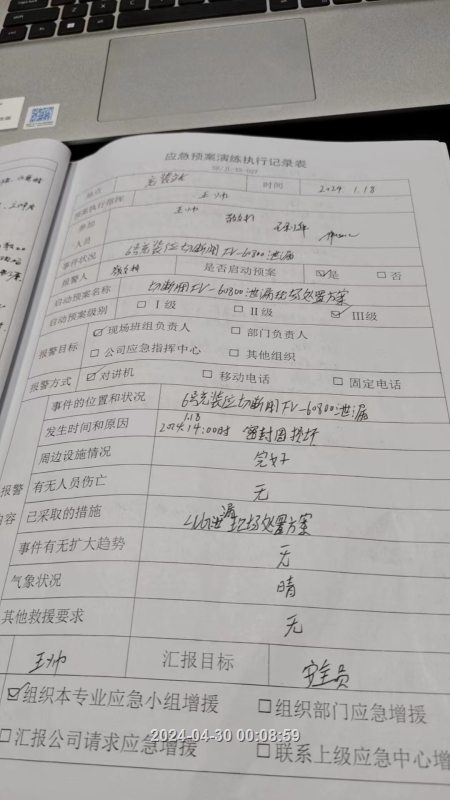 应急预案演练执行记录表
地点 充装台 时间 2024 1.18
预案执行指挥 王帅
参加人员 王帅
事件状况 6号充装区切断阀FV-60800泄漏
报警人 是否启动预案 ☑是 □否
启动预案名称 切断阀FV-60800泄漏现场处置方案
启动预案级别 □I级 □II级 ☑III级
报警目标 ☑现场班组负责人 □部门负责人
□公司应急指挥中心 □其他组织
报警方式 ☑对讲机 □移动电话 □固定电话
事件的位置和状况 6号充装区切断阀FV-60800泄漏
发生时间和原因 2024.1.18 14:00时 密封圈损坏
周边设施情况 完好
报警内容 有无人员伤亡 无
已采取的措施 LNG泄漏现场处置方案
事件有无扩大趋势 无
气象状况 晴
其他救援要求 无
王帅 汇报目标 安全员
☑组织本专业应急小组增援 □组织部门应急增援
□汇报公司请求应急增援 □联系上级应急中心增
2024-04-30 00:08:59